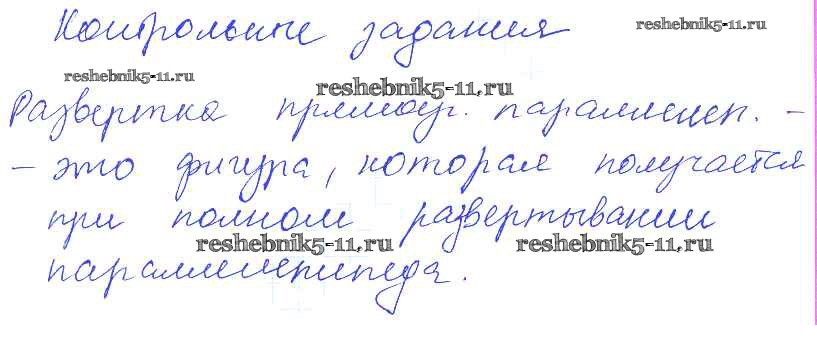 Контрольные задания
reshebnik5-11.ru
reshebnik5-11.ru
reshebnik5-11.ru
Развертка прямоуг. параллелеп. -
- это фигура, которая получается
при полном развертывании
reshebnik5-11.ru
reshebnik5-11.ru
параллелепипеда.